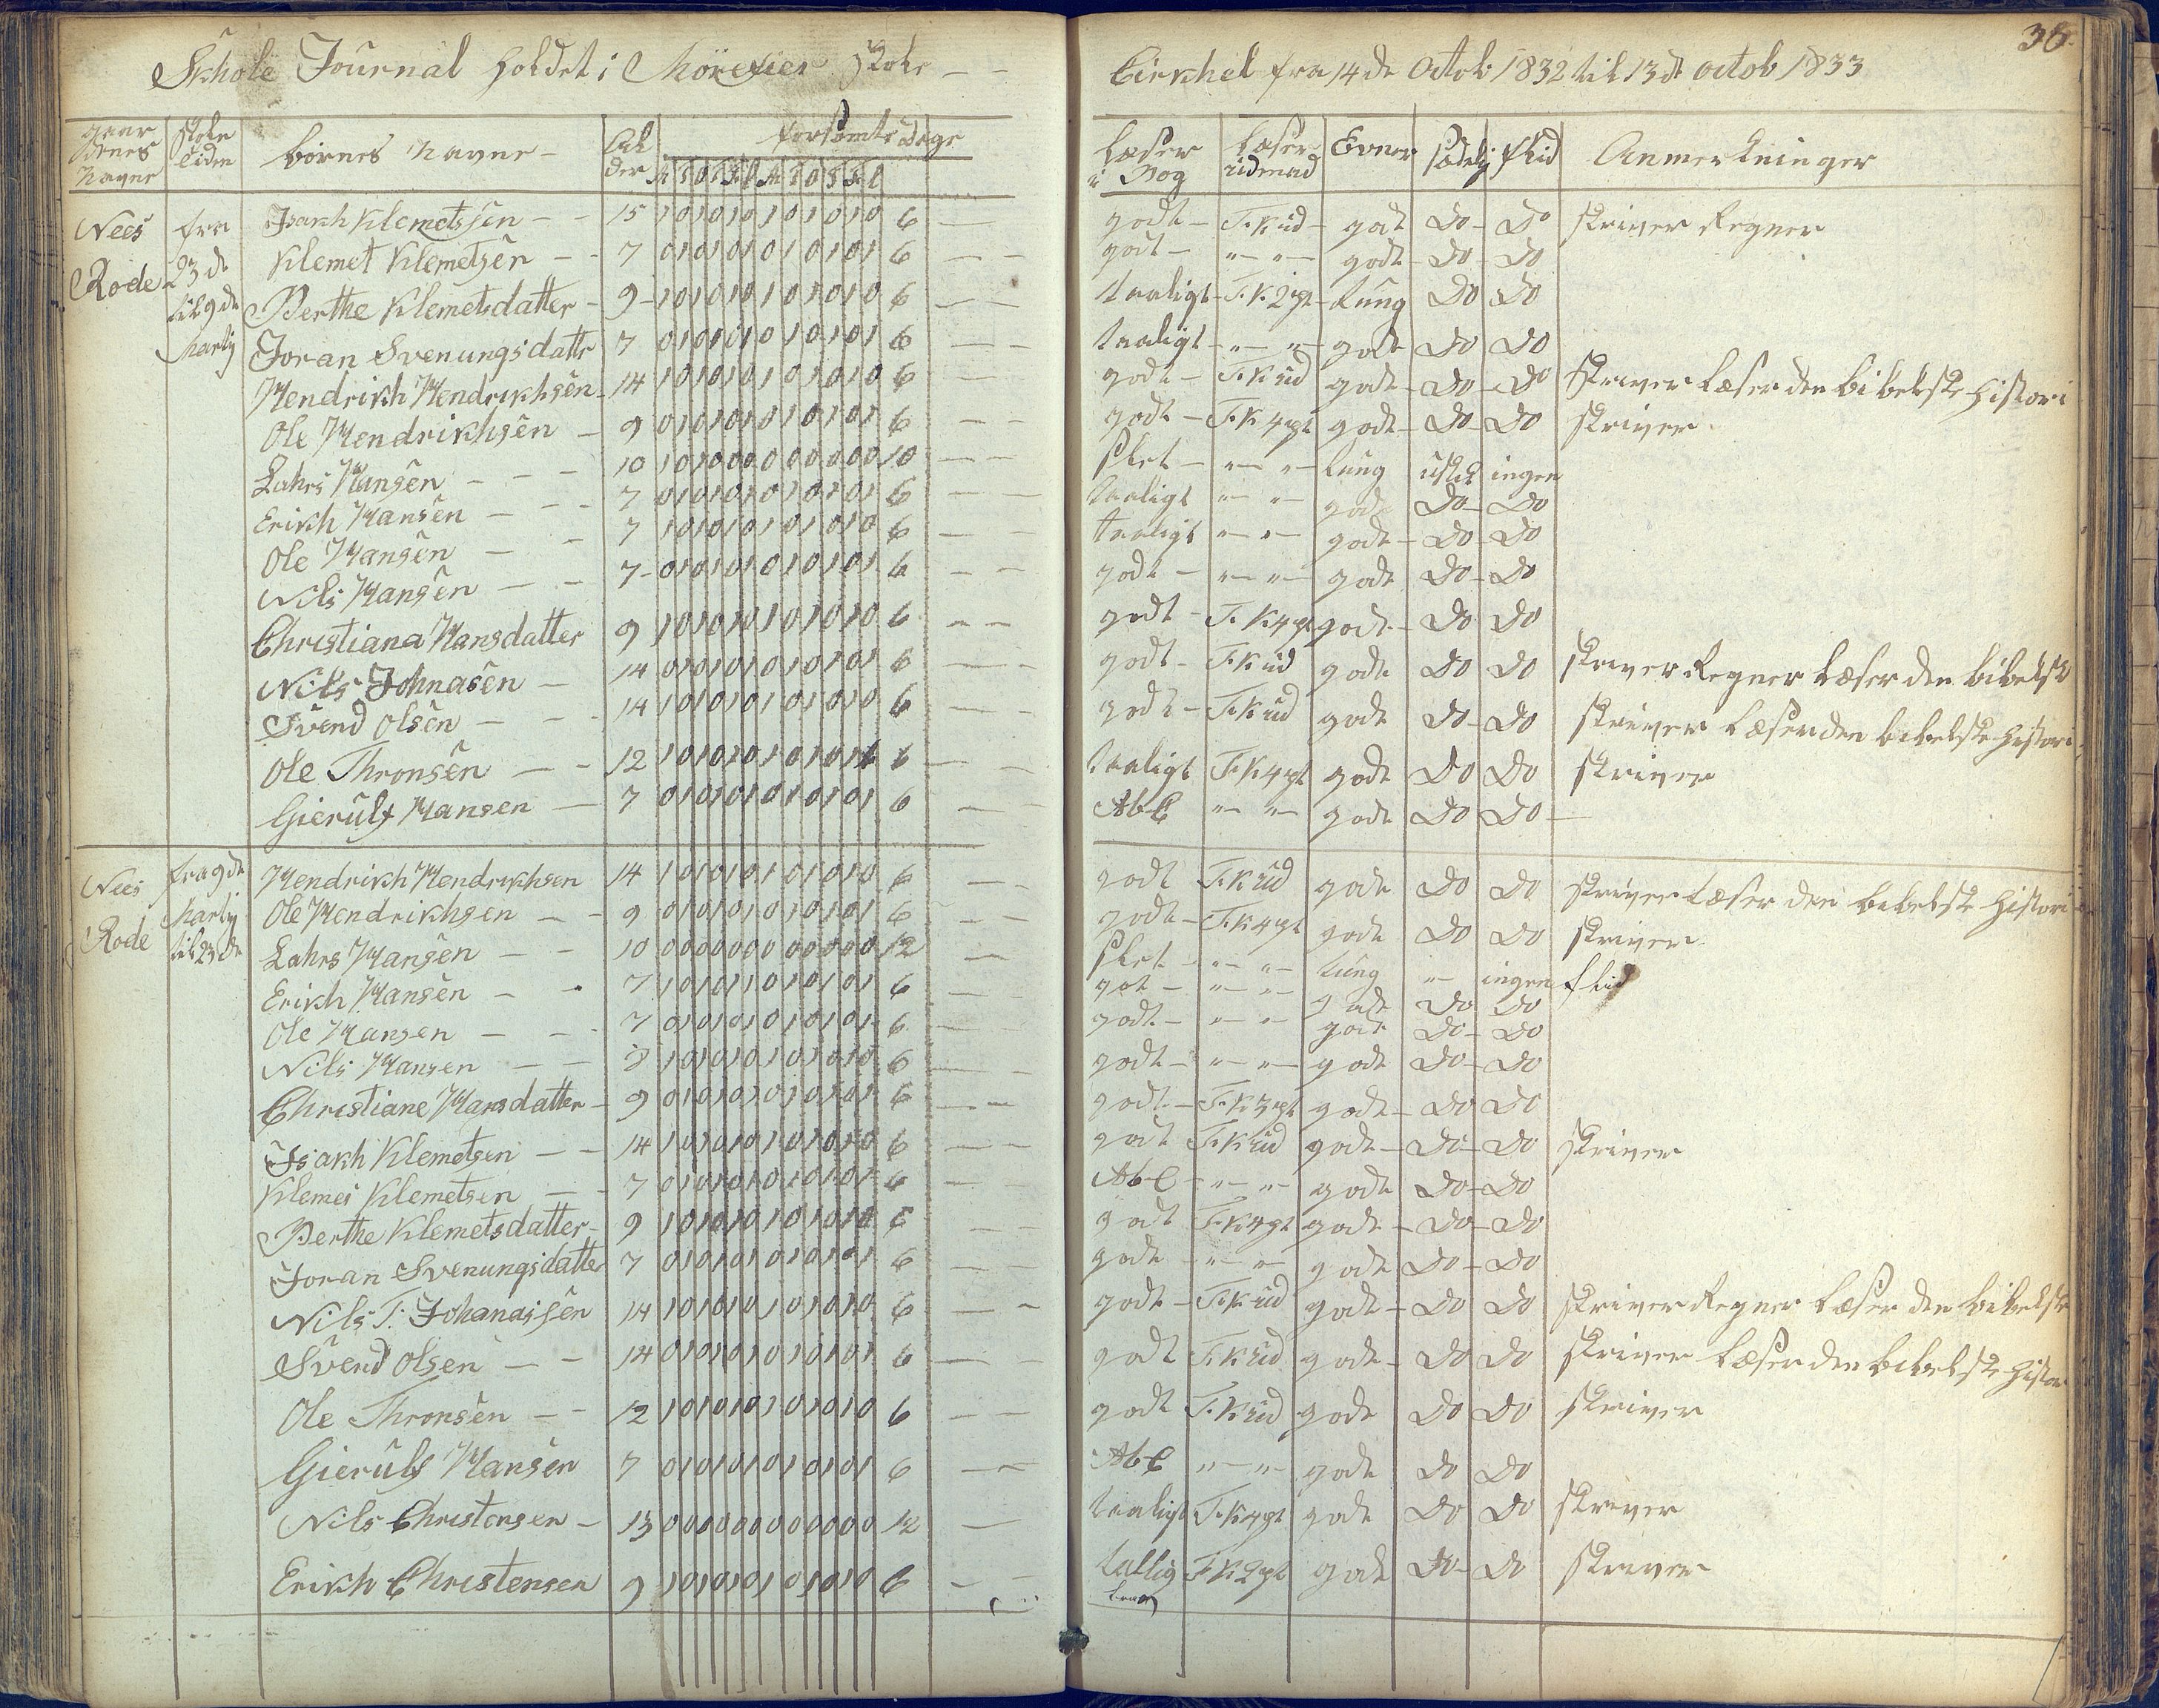 Skhole Journal holdet i Mörefier Skole
Cirkhel fra 14de Octob 1832 til 13de octob 1833
36
gaardenes Navne | Skole tiden | börnes Navne | Alder | forsömte Dage | M T O T F L M T O T F L
Læser i Bog | Læser udenad | Evner | sædelig | flid | Anmerkninger
Nees Rode | fra 23de til 9de Martij
Isakh Klemetssen | 15 | 1 0 1 0 1 0 1 0 1 0 1 0 | 6 | godt | T. K. ud | gode | Do | Do | skriver Regner
Klemet Klemetsen | 7 | 0 1 0 1 0 1 0 1 0 1 0 1 | 6 | godt | " " | gode | Do | Do
Berthe Klemetsdatter | 9 | 1 0 1 0 1 0 1 0 1 0 1 0 | 6 | taaligt | T. K. 2 pt | tung | Do | Do
Joran Svenungsdattr | 7 | 0 1 0 1 0 1 0 1 0 1 0 1 | 6 | taaligt | " " | gode | Do | Do
Hendrikh Hendrikhsen | 14 | 1 0 1 0 1 0 1 0 1 0 1 0 | 6 | godt | T. K. ud | gode | Do | Do | skriver læser den bibelske Histori
Ole Hendrikhsen | 9 | 0 1 0 1 0 1 0 1 0 1 0 1 | 6 | godt | T. K. 4 pt | gode | Do | Do | skriver
Lahrs Hansen | 10 | 1 0 1 0 0 0 0 0 0 0 0 0 | 10 | slet | " " | tung | | ingen
Erikh Hansen | 7 | 0 1 0 1 0 1 0 1 0 1 0 1 | 6 | taaligt | " " | gode | Do | Do
Ole Hansen | 7 | 1 0 1 0 1 0 1 0 1 0 1 0 | 6 | taaligt | " " | gode | Do | Do
Nils Hansen | 7 | 0 1 0 1 0 1 0 1 0 1 0 1 | 6 | godt | " " | gode | Do | Do
Christiana Hansdatter | 9 | 1 0 1 0 1 0 1 0 1 0 1 0 | 6 | godt | T. K. 4 pt | gode | Do | Do
Nils Johnasen | 14 | 0 1 0 1 0 1 0 1 0 1 0 1 | 6 | godt | T. K. ud | gode | Do | Do | skriver Regner læser den bibelsk
Svend Olsen | 14 | 1 0 1 0 1 0 1 0 1 0 1 0 | 6 | godt | T. K. ud | gode | Do | Do | skriver læser den bibelske Histori
Ole Thronsen | 12 | 1 0 1 0 1 0 1 0 1 0 1 | 6 | taaligt | T. K. 4 pt | gode | Do | Do | skriver
Gierulf Hansen | 7 | 0 1 0 1 0 1 0 1 0 1 0 1 | 6 | AbC | " " | gode | Do | Do
Nees Rode | fra 9de Martij til 23de
Hendrikh Hendrikhsen | 14 | 1 0 1 0 1 0 1 0 1 0 1 0 | 6 | godt | T. K. ud | gode | Do | Do | skriver læser den bibelske Histori
Ole Hendrikhsen | 9 | 0 1 0 1 0 1 0 1 0 1 0 1 | 6 | godt | T. K. 4 pt | gode | Do | Do | skriver
Lahrs Hansen | 10 | 0 0 0 0 0 0 0 0 0 0 0 0 | 12 | slet | " " | tung | " | ingen flid
Erikh Hansen | 7 | 1 0 1 0 1 1 0 1 0 1 0 1 | 6 | got | " " | gode | Do | Do
Ole Hansen | 7 | 0 1 0 1 0 1 0 1 0 1 0 1 | 6 | godt | " " | gode | Do | Do
Nils Hansen | 8 | 1 0 1 0 1 0 1 0 1 0 1 0 | 6 | godt | " " | gode | Do | Do
Christiane Hansdatter | 9 | 0 1 0 1 0 1 0 1 0 1 0 1 | 6 | godt | T. K. 3 pt | gode | Do | Do
Isakh Klemetsen | 14 | 1 0 1 0 1 0 1 0 1 0 1 0 | 6 | godt | T. K. ud | gode | Do | Do | skriver
Klemei Klemetsen | 7 | 0 1 0 1 0 1 0 1 0 1 0 1 | 6 | AbC | " " | gode | Do | Do
Berthe Klemetsdatter | 9 | 1 0 1 0 1 0 1 0 1 0 1 0 | 6 | godt | T. K. 4 pt | gode | Do | Do
Joran Svenungsdatter | 7 | 0 1 0 1 0 1 0 1 0 1 0 1 | 6 | godt | " " | gode | Do | Do
Nils T. Johanassen | 14 | 1 0 1 0 1 0 1 0 1 0 1 0 | 6 | godt | T. K. ud | gode | Do | Do | skriver Regner læser den bibelske
Svend Olsen | 14 | 0 1 0 1 0 1 0 1 0 1 0 1 | 6 | godt | T. K. ud | gode | Do | Do | skriver læser den bibelske Histor
Ole Thronsen | 12 | 1 0 1 0 1 0 1 0 1 0 1 0 | 6 | godt | T. K. ud | gode | Do | Do | skriver
Gierulf Hansen | 7 | 0 1 0 1 0 1 0 1 0 1 0 1 | 6 | AbC | " " | gode | Do | Do
Nils Christensen | 13 | 0 0 0 0 0 0 0 0 0 0 0 0 | 12 | taaligt | T. K. 4 pt | gode | Do | Do | skriver
Erikh Christensen | 9 | 1 0 1 0 1 0 1 0 1 0 1 0 | 6 | T. K. 2 pt | gode | Do | Do | skriver